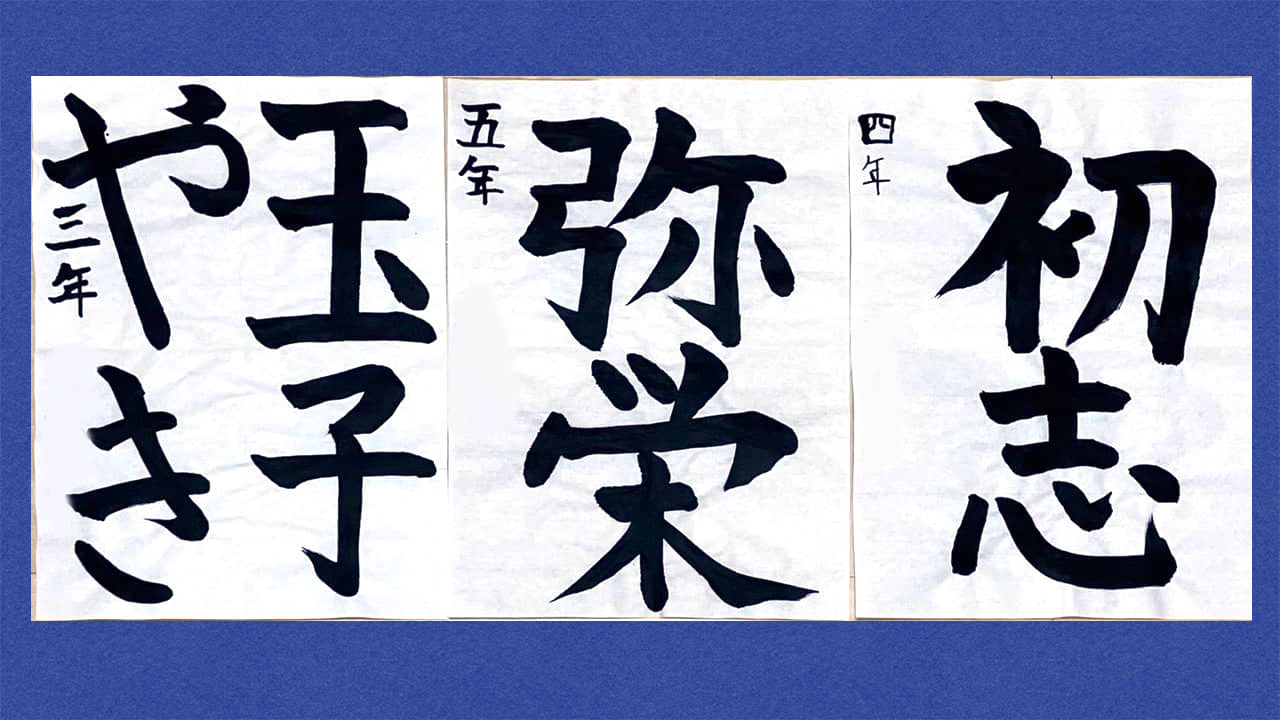 初志
四年
弥栄
五年
玉子
やき
三年